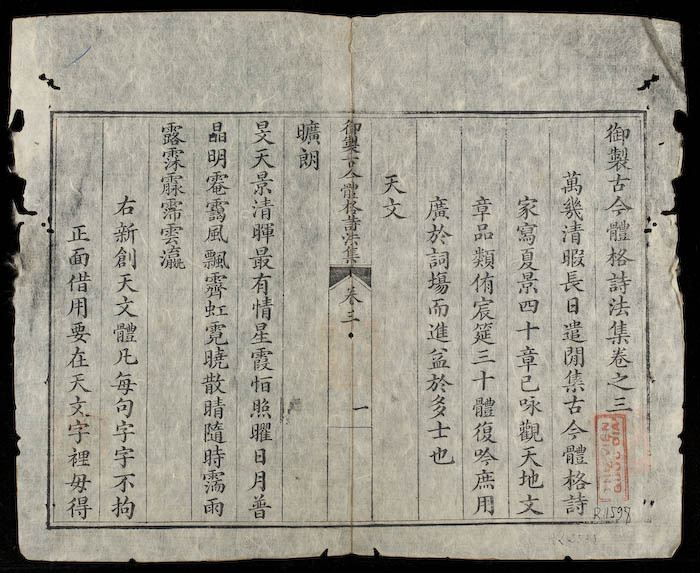 御製古今體格詩法集卷之三
萬幾清暇長日遣閒集古今體格詩
家寫夏景四十章已咏觀天地文
章品類侑宸筵三十體復吟庶用
廣於詞塲而進益於多士也
天文
御製古今體格詩法集 卷三 一
曠朗
旻天景清暉最有情星霞恒照曜日月普
晶明靄風飄霽虹霓曉散晴隨時雨
露雲瀛
右新創天文體凡每句字字不拘
正面借用要在天文字裡毋得